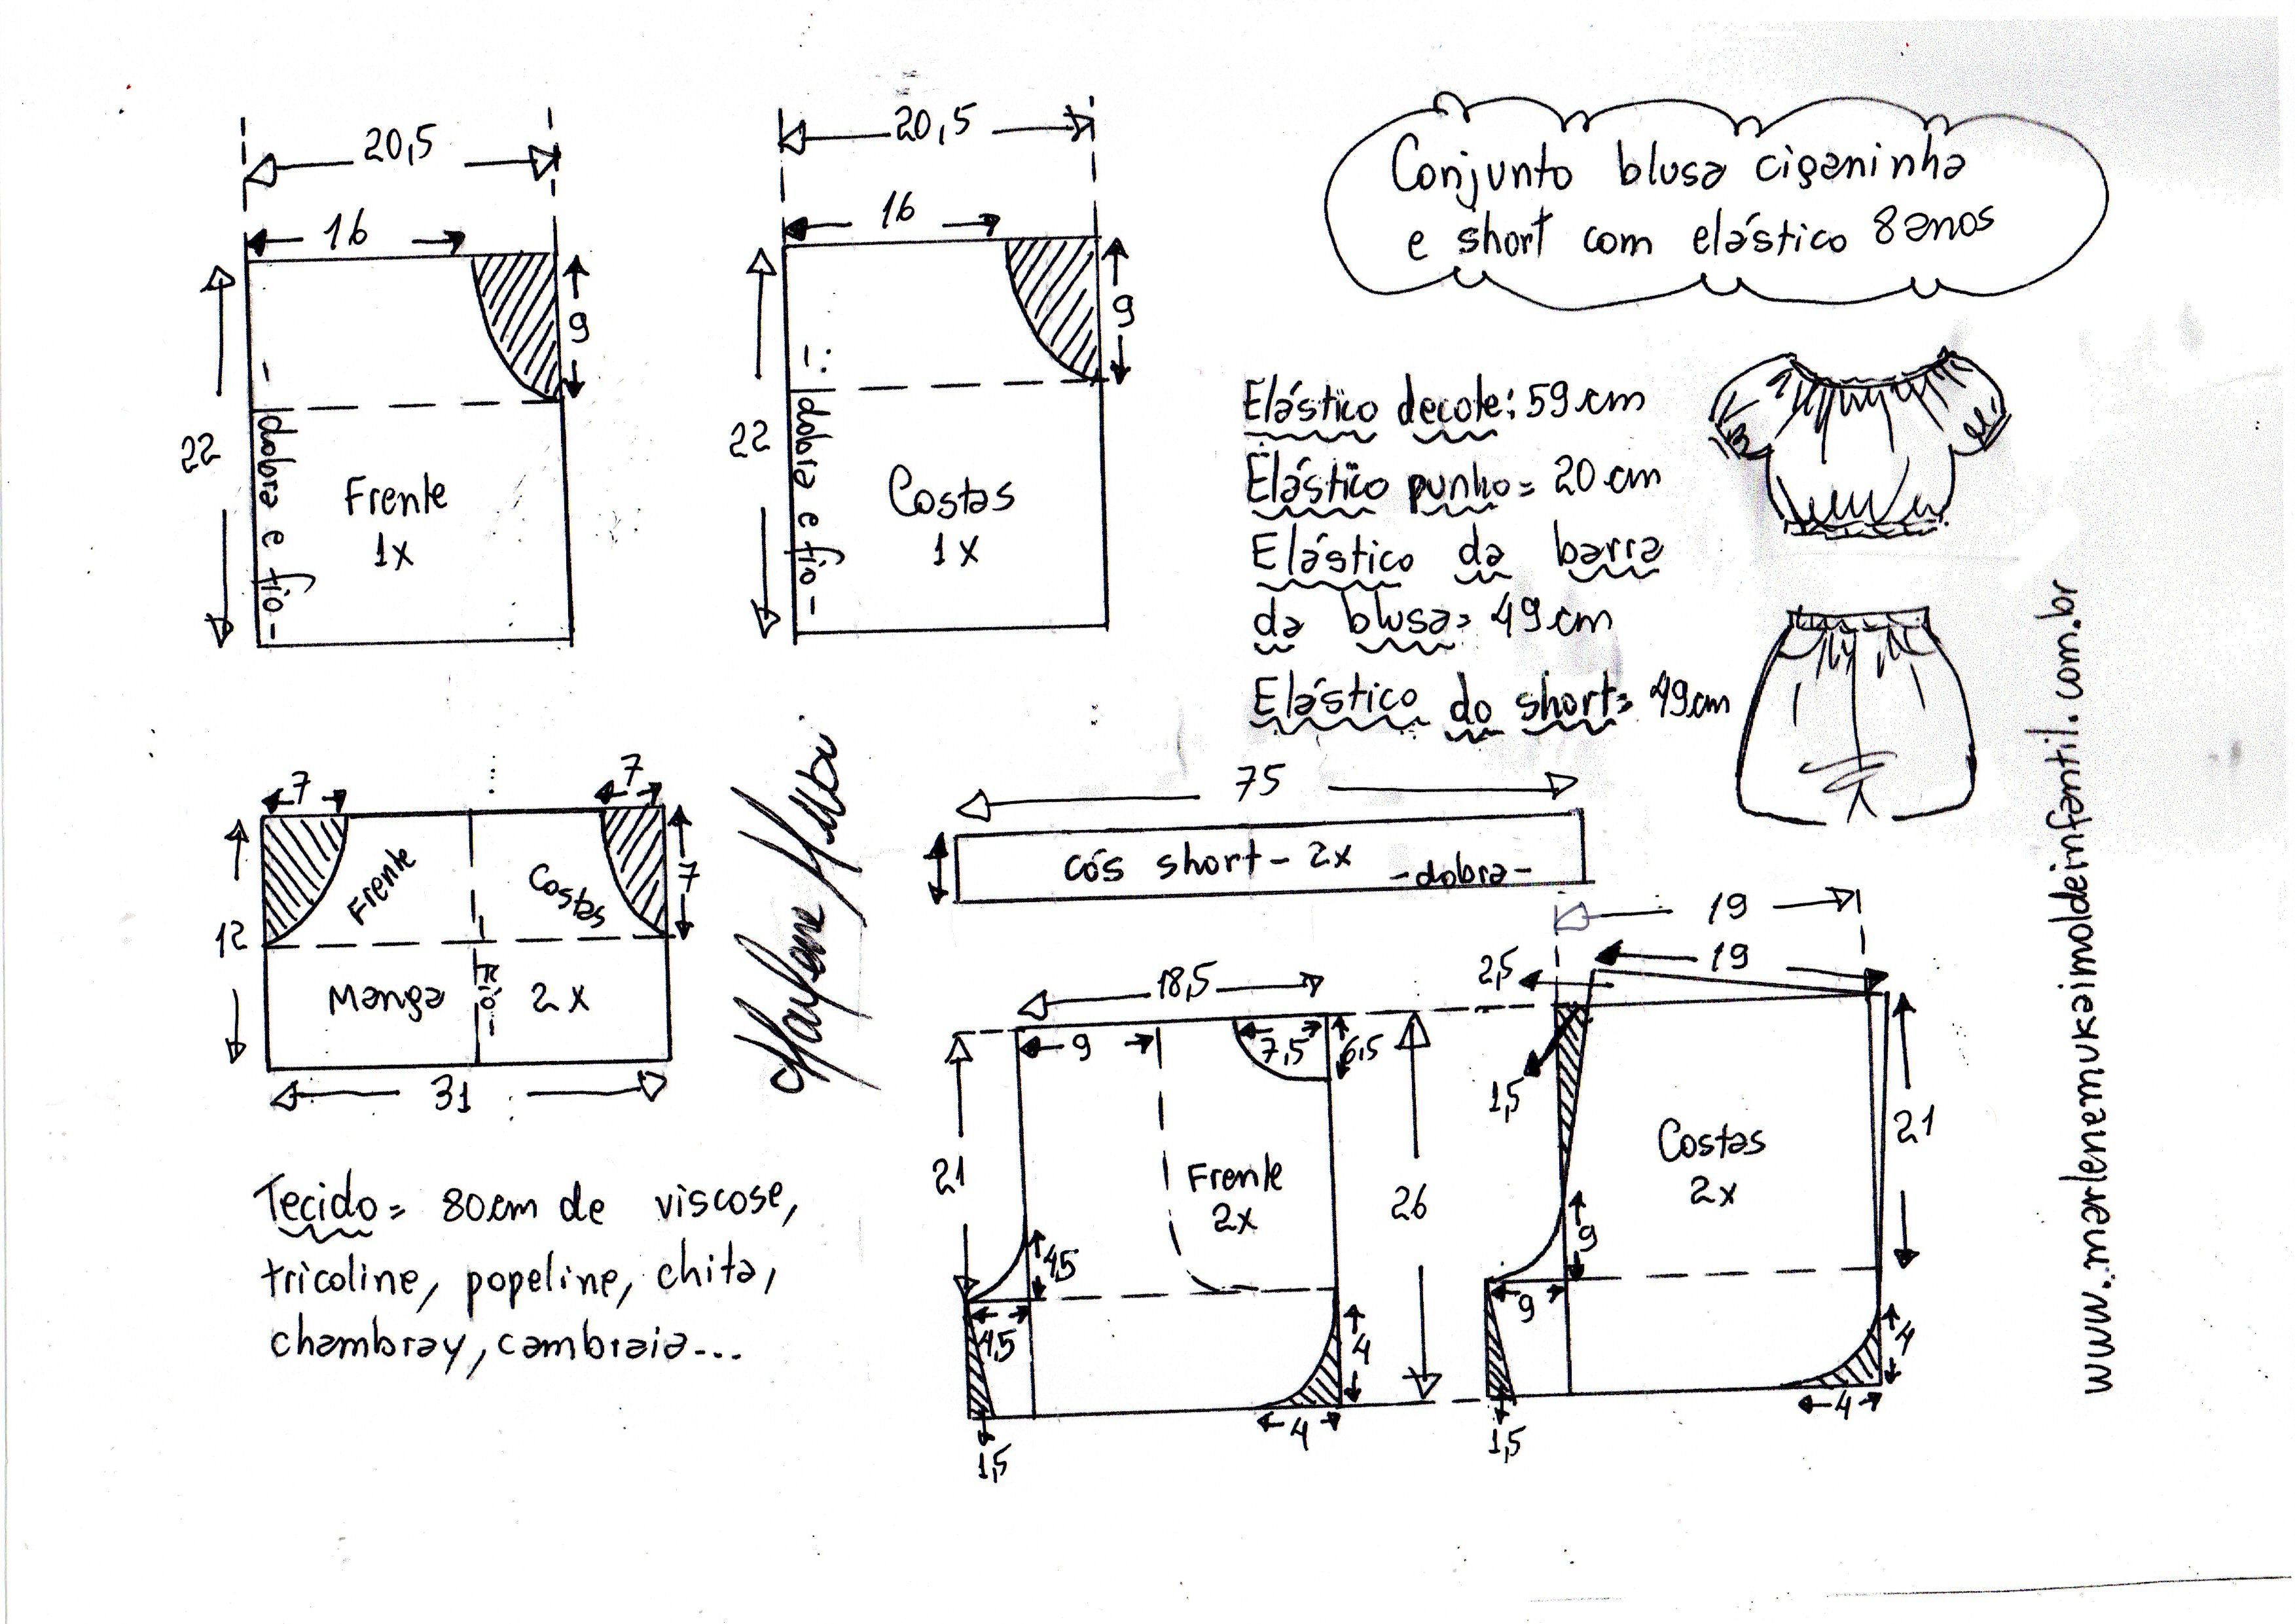 Conjunto blusa ciganinha
e short com elástico 8 anos
20,5
16
9
22
dobra e fio
Frente
1x
20,5
16
9
22
dobra e fio
Costas
1x
Elástico decote: 59 cm
Elástico punho = 20 cm
Elástico da barra
da blusa = 49 cm
Elástico do short = 49 cm
7
7
7
12
Frente
Costas
Manga
fio
2x
31
Tecido = 80 cm de viscose,
tricoline, popeline, chita,
chambray, cambraia...
75
cós short - 2x
-dobra-
18,5
9
7,5
6,5
21
26
Frente
2x
4,5
4,5
4
4
1,5
19
19
2,5
1,5
21
Costas
2x
9
9
4
4
1,5
www.marlenemukaimoldeinfantil.com.br